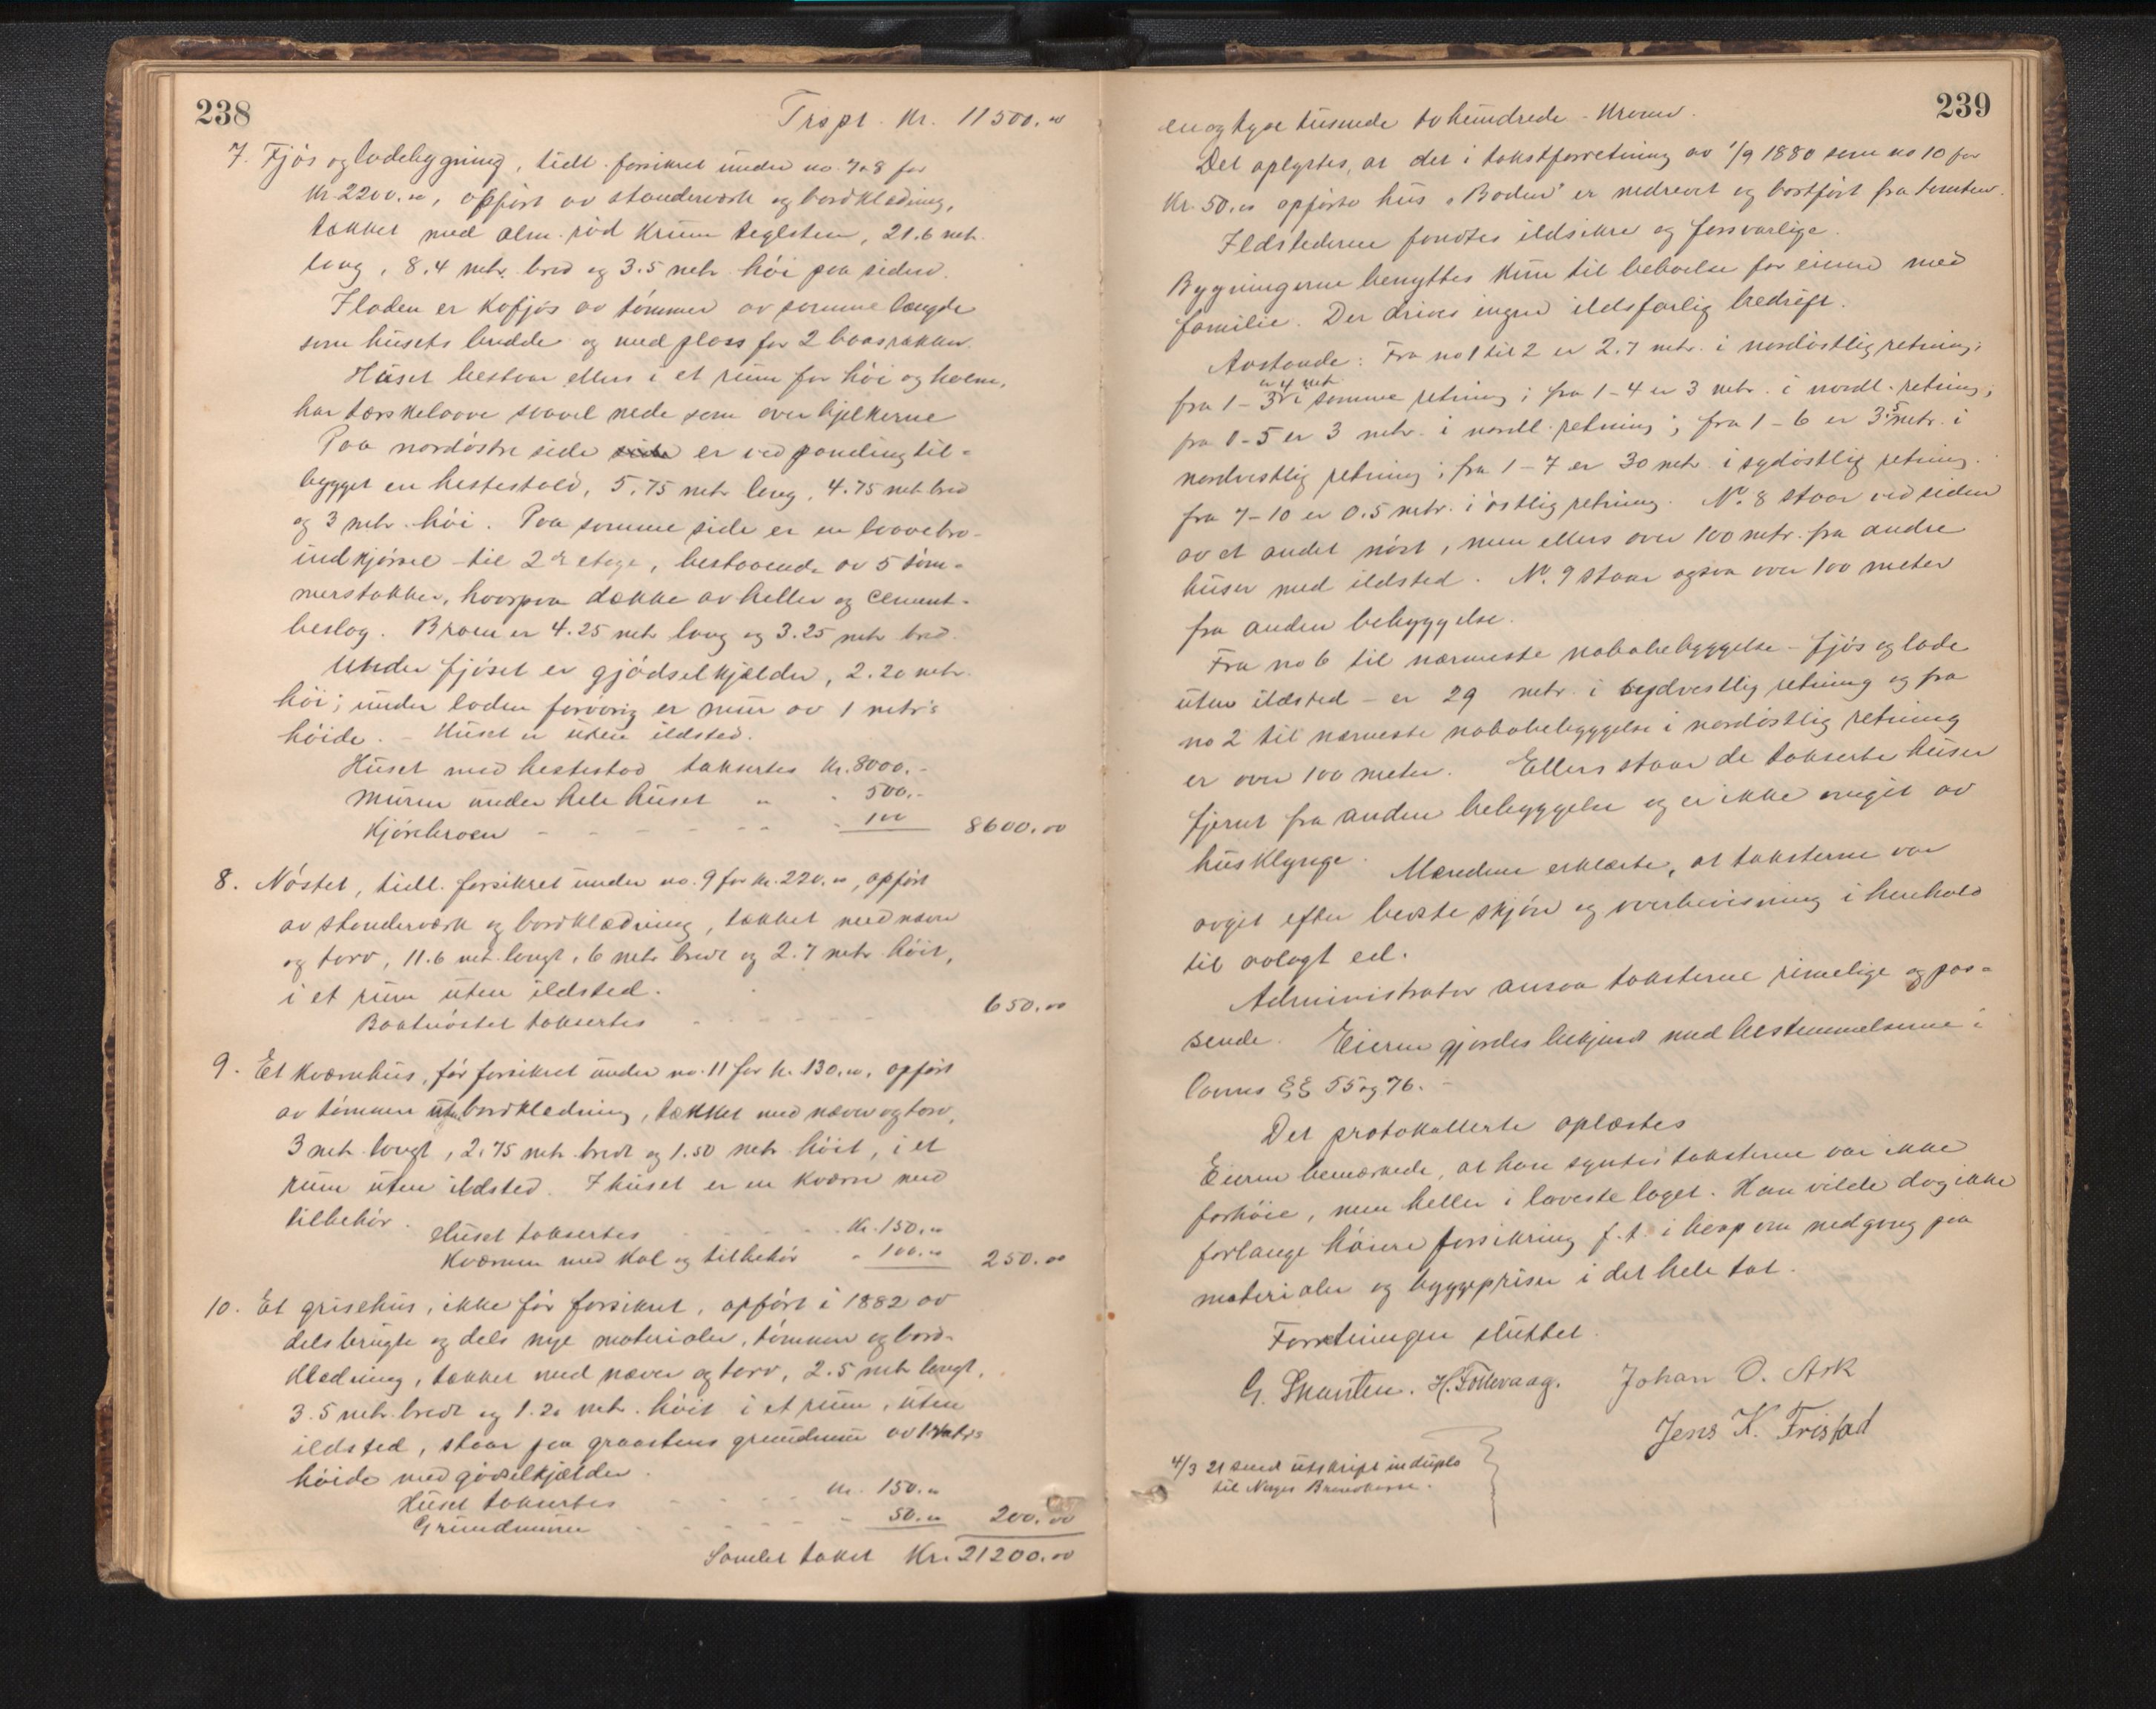 238
Trspt. Kr. 11500.00
7. Fjøs og ladebygning, tidl. forsikret under no. 7 & 8 for
Kr. 2200.00, opført av standerverk og bordklædning,
tækket med alm. rød krum teglsten, 21.6 metr.
lang, 8.4 metr. bred og 3.5 metr. høi paa siden.
I laden er kofjøs av tømmer av samme længde
som husets bredde og med plass for 2 baasrækker.
Huset bestaar ellers i et rum for høi og halm,
har tærskelaave saavel nede som over bjelkerne
Paa nordøstre side er ved paneling til-
bygget en hestestald, 5.75 metr lang, 4.75 metr. bred
og 3 metr. høi. Paa samme side er en laavebro-
indkjørsel - til 2den etage, bestaaende av 5 tøm-
merstokker, hvorpaa dække av heller og cement-
beslag. Broen er 4.25 metr lang og 3.25 metr bred.
Under fjøset er gjødselkjælder, 2.20 metr.
høi; under laden forøvrig er mur av 1 metr's
høide. - Huset er uten ildsted.
Huset med hestestad taksertes Kr. 8000.-
Muren under hele huset " " 500.-
Kjørebroen - - - - - - 100 8600.00
8. Nøstet, tidl. forsikret under no. 9 for kr. 220.00, opført
av standerværk og bordklædning, tækket med næver
og torv, 11.6 met. langt, 6 metr bredt og 2.7 metr høit,
i et rum uten ildsted.
Baatnøstet taksertes - - - - - - 650.00
9. Et kværnhus, før forsikret under no. 11 for kr. 130.00, opført
av tømmer uten bordklædning, tækket med næver og torv,
3 metr. langt, 2.75 metr. bredt og 1.50 metr høit, i et
rum uten ildsted. I huset er en kværn med
tilbehør.
Huset taksertes - - - - Kr. 150.00
Kværnen med kal og tilbehør " 100.00 250.00
10. Et grisehus, ikke før forsikret, opført i 1882 av
dels brugte og dels nye materialer, tømmer og bord-
klædning, tækket med næver og torv, 2.5 metr langt,
3.5 metr. bredt og 1.20 metr. høit i et rum, uten
ildsted, staar paa graastens grundmur av 1 metrs
høide med gjødselkjælder.
Huset taksertes - - - - kr. 150.00
Grundmuren - - - - - 50.00 200.00
Samlet takst Kr. 21200.00
239
en og tyve tusende to hundrede - Kroner.
Det oplystes, at det i takstforretning av 1/9 1880 som no 10 for
Kr. 50.00 opførte hus "Boden" er nedrevet og bortført fra tomten.
Ildstederne fandtes ildsikre og forsvarlige.
Bygningerne benyttes kun til beboelse for eieren med
familie. Der drives ingen ildsfarlig bedrift.
Avstande: Fra no 1 til 2 er 2.7 metr. i nordøstlig retning;
fra 1 - 3 er 4 metr i samme retning; fra 1 - 4 er 3 metr. i nordl. retning;
fra 1 - 5 er 3 metr. i nordl. retning; fra 1 - 6 er 3.5 metr. i
nordvestlig retning; fra 1 - 7 er 30 metr. i sydøstlig retning.
fra 7 - 10 er 0.5 metr. i østlig retning. No. 8 staar ved siden
av et andet nøst, men ellers over 100 metr. fra andre
huser med ildsted. No. 9 staar ogsaa over 100 meter
fra anden bebyggelse.
Fra no 6 til nærmeste nabobebyggelse - fjøs og lade
uten ildsted - er 29 metr. i sydvestlig retning og fra
no 2 til nærmeste nabobebyggelse i nordøstlig retning
er over 100 meter. Ellers staar de takserte huser
fjernt fra anden bebyggelse og er ikke omgit av
husklynge. Mændene erklærte, at taksterne var
avgit efter bedste skjøn og overbevisning i henhold
til avlagt ed.
Administrator ansaa taksterne rimelige og pas-
sende. Eieren gjordes bekjendt med bestemmelserne i
lovens §§ 55 og 76. -
Det protokollerte oplæstes
Eieren bemærkede, at han syntes taksterne var ikke
forhøie, men heller i laveste laget. Han vilde dog ikke
forlange høiere forsikring f. t. i haap om nedgang paa
materialer og byggepriser i det hele tat.
Forretningen sluttet.
G. H. Tollevaag. Johan O. Ask
Jens K. Fristad
4/3 21 sendt utskript in duplo
til Norges Brandkasse.